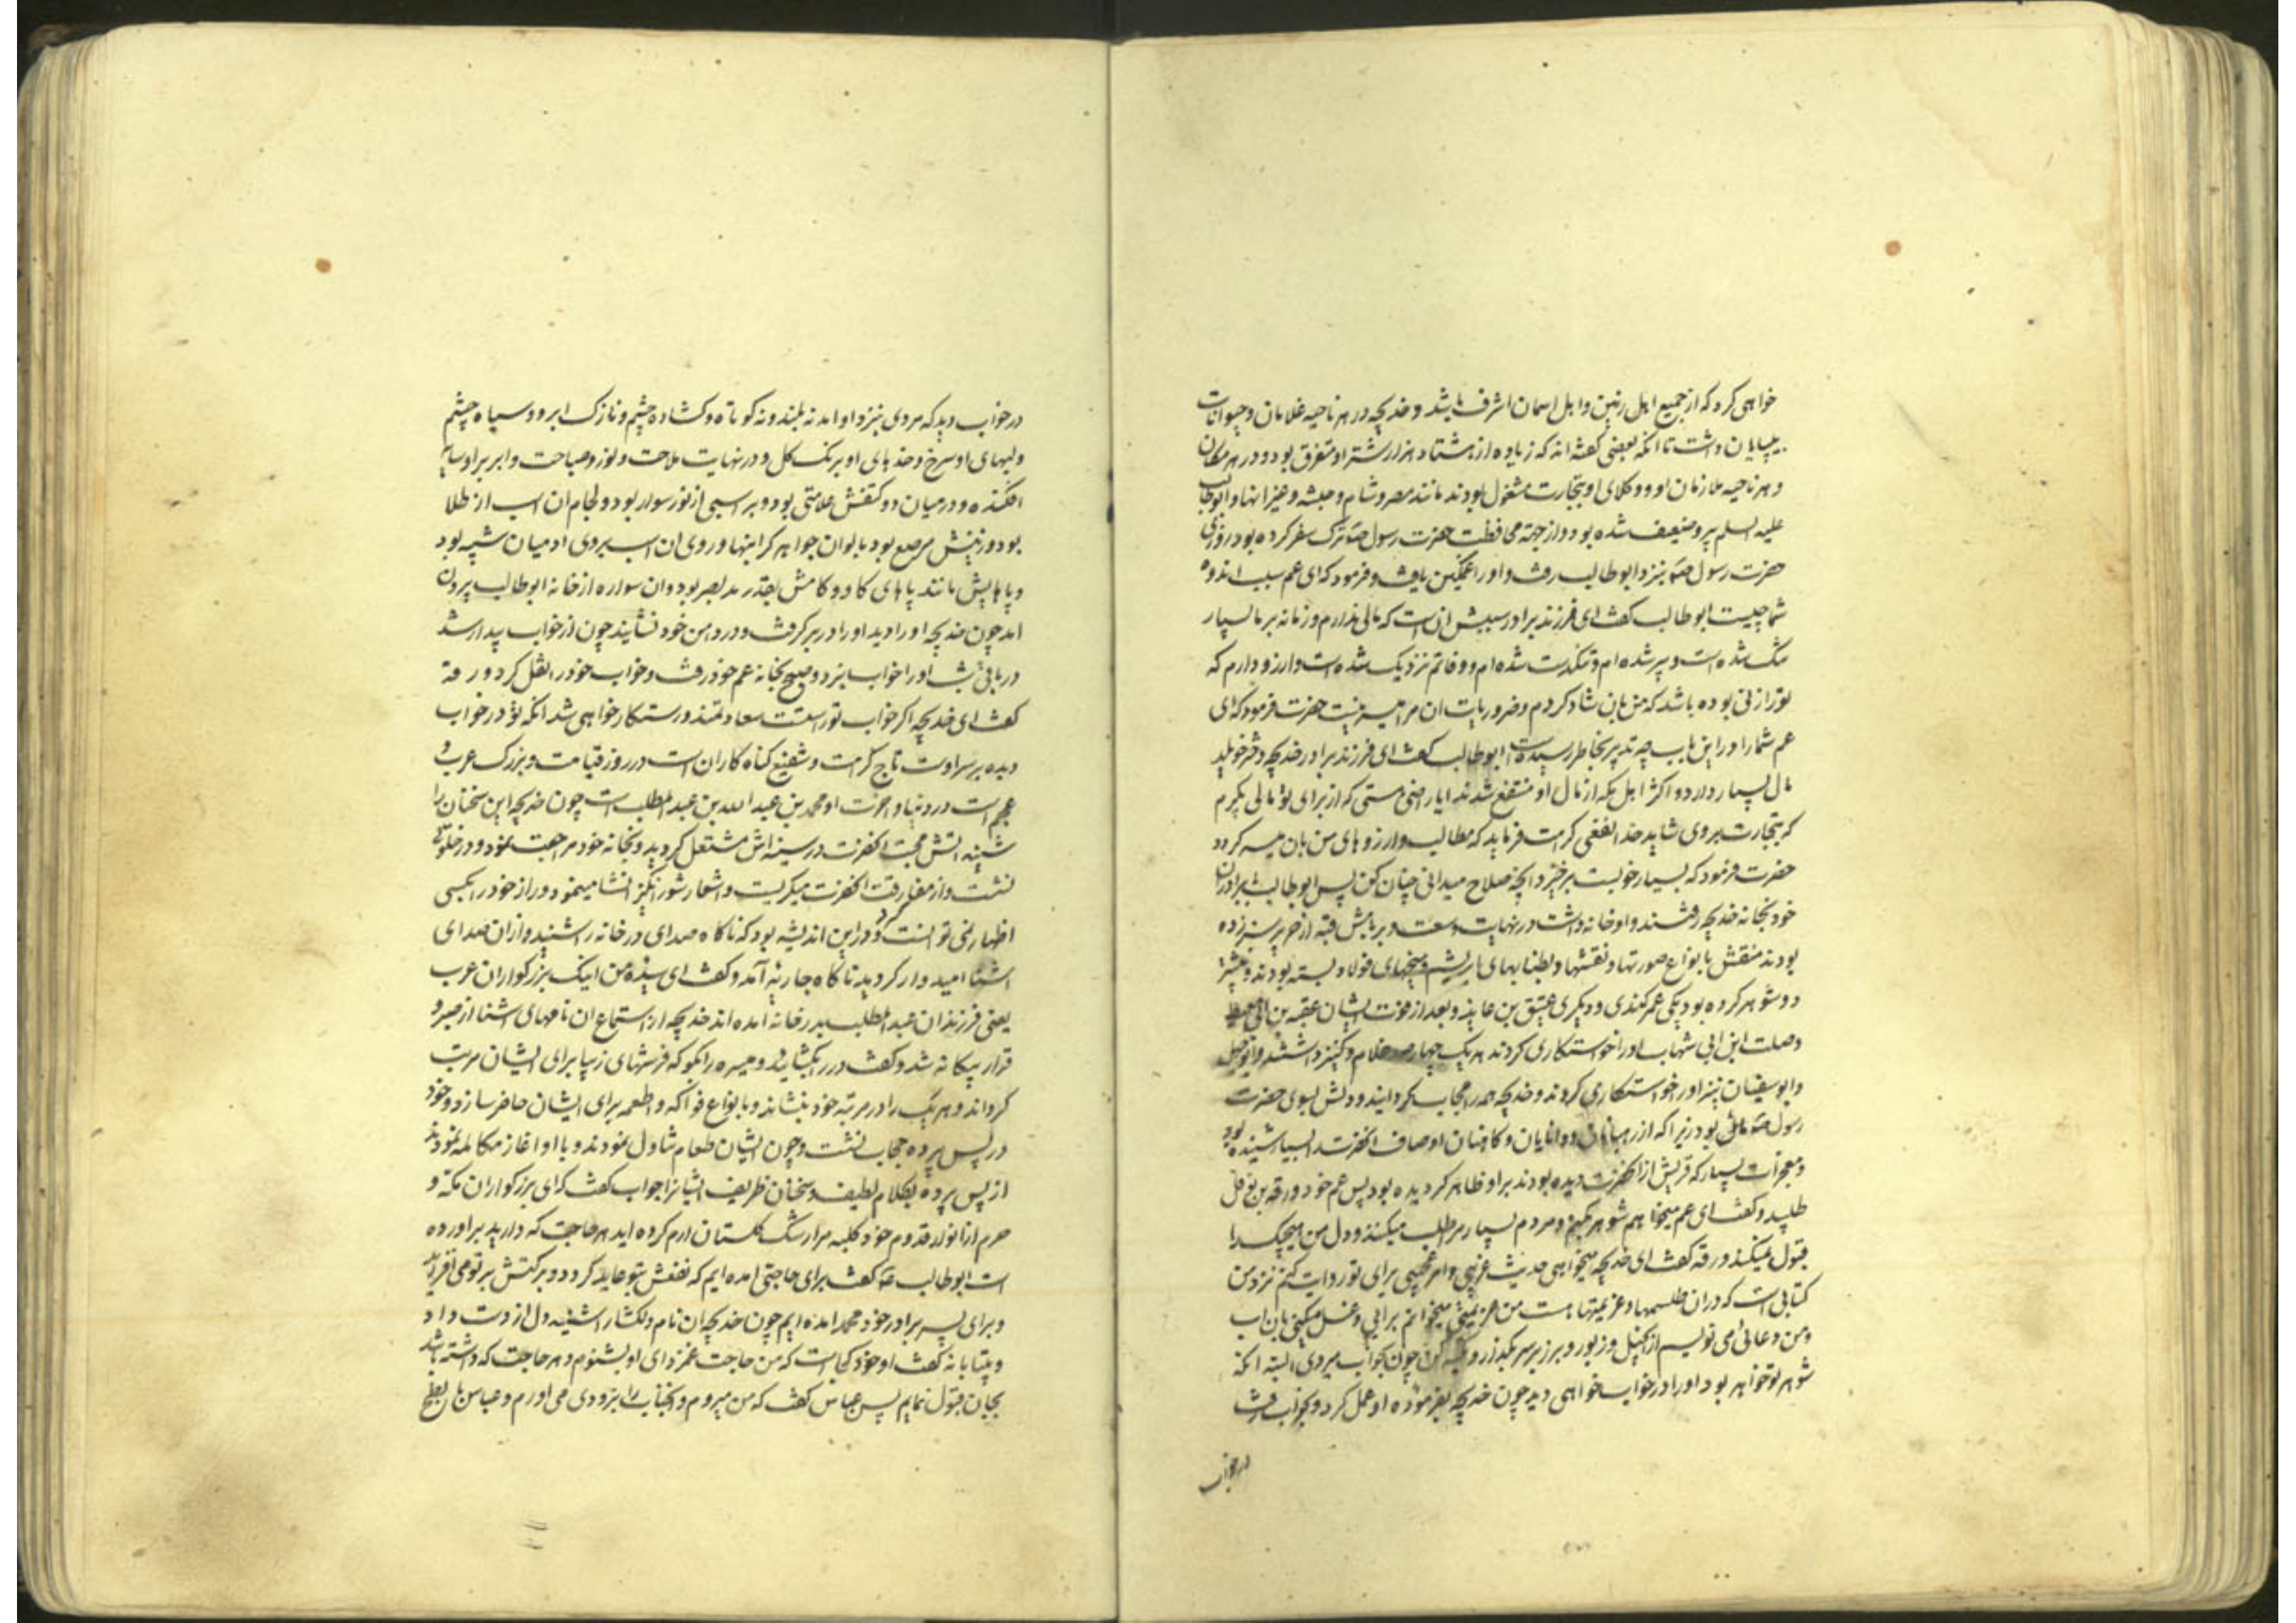 خواهی کرد که از جمیع اهل زمین و اهل اسمان اشرف باشد و خدیجه در هر ناحیه غلامان و حیوانات
بیپایان داشت تا انکه بعضی گفته اند که زیاده از هشتاد هزار شتر او متفرق بود و در هر مکان
و هر ناحیه ملازمان او و وکلای او بتجارت مشغول بودند مانند مصر و شام و حبشه و غیر انها و ابوطالب
علیه السلم پیر و ضعیف شده بود و از جهة محافظت حضرت رسول ص ترک سفر کرده بود روزی
حضرت رسول ص بنزد ابوطالب رفت و او را غمگین یافت و فرمود که ای عم سبب اندوه
شما چیست ابوطالب گفت ای فرزند برادر سببش ان است که مالی ندارم و زمانه بر ما بسیار
تنک شده است و پیر شده ام و تنگدست شده ام و وفاتم نزدیک شده است و ارزو دارم که
تو را زنی بوده باشد که من بان شاد کردم و ضروریات ان مرا میسر نیست حضرت فرمود که ای
عم شما را در این باب چه تدبیر بخاطر رسیده است ابوطالب گفت ای فرزند برادر خدیجه دختر خویلد
مال بسیار دارد و اکثر اهل مکه از مال او منتفع شدند ایا راضی هستی که از برای تو مالی بگیرم
که بتجارت بروی شاید خدا نفعی کرامت فرماید که مطالب و ارزوهای من بان میسر کردد
حضرت فرمود که بسیار خوبست برخیز و انچه صلاح میدانی چنان کن پس ابوطالب با برادران
خود بخانه خدیجه رفتند و او خانه داشت در نهایت وسعت و بر بامش قبه از حریر سبز زده
بودند منقش بانواع صورتها و نقشها و بطنابهای ابریشم و میخهای فولاد بسته بودند و پیشتر
دو شوهر کرده بود یکی عمر کندی و دیکری عتیق بن عایذ و بعد از فوت ایشان عقبه بن ابی معیط
و صلت ابن ابی شهاب او را خواستکاری کردند هر یک چهار صد غلام و کنیز داشتند و ابوجهل
و ابوسفیان نیز او را خواستکاری کردند و خدیجه همه را جواب کردانید و دلش بسوی حضرت
رسول ص مائل بود زیرا که از رهبانان و دانایان و کاهنان اوصاف انحضرت را بسیار شنیده بود
و معجزات بسیار که قریش از انحضرت دیده بودند بر او ظاهر کردیده بود پس عم خود ورقه بن نوفل
طلبید و گفت ای عم میخواهم شوهر بکنم و مردم بسیار مرا طلب میکنند و دل من هیچیک را
قبول نمیکند ورقه گفت ای خدیجه میخواهی حدیث غریبی و امر عجیبی برای تو روایت کنم نزد من
کتابی است که در ان طلسمها و عزیمتها هست من عزیمتی میخوانم بر ابی و غسل میکنی بان اب
و من دعائی می نویسم از انجیل و زبور و بر زیر سر بگذار و تکیه کن چون بخواب میروی البته انکه
شوهر تو خواهد بود او را در خواب خواهی دید چون خدیجه بفرموده او عمل کرد و بخواب رفت
در خواب
در خواب دید که مردی بنزد او امد نه بلند و نه کوتاه و کشاده چشم و نازک ابرو و سیاه چشم
و لبهای او سرخ و خدهای او برنک کل و در نهایت ملاحت و نور و صباحت و ابر بر او سایه
افکنده و در میان دو کتفش علامتی بود و بر اسبی از نور سوار بود و لجام ان اسب از طلا
بود و زینش مرصع بود بالوان جواهر گرانبها و روی ان اسب بروی ادمیان شبیه بود
و پاهایش مانند پاهای کاو و کامش بقدر مد بصر بود و ان سواره از خانه ابوطالب بیرون
امد چون خدیجه او را دید او را در بر گرفت و در دامن خود نشانید چون از خواب بیدار شد
در باقی شب او را خواب نبرد و صبح بخانه عم خود رفت و خواب خود را نقل کرد ورقه
گفت ای خدیجه اکر خواب تو راست است سعادتمند و رستکار خواهی شد انکه تو در خواب
دیده بر سر اوست تاج کرامت و شفیع کناه کاران است در روز قیامت و بزرک عرب و
عجم است در دنیا و اخرت او محمد بن عبد الله بن عبد المطلب است چون خدیجه این سخنان را
شنید اتش محبت انحضرت در سینه اش مشتعل کردید و بخانه خود مراجعت نمود و در خلوتی
نشست و از مفارقت انحضرت میکریست و اشعار شورانکیز انشا مینمود و راز خود را بکسی
اظهار نمی توانست کرد و در این اندیشه بود که ناکاه صدای در خانه را شنید و از ان صدای
اشنا امیدوار کردید ناکاه جاریه آمد و گفت ای سیده من اینک بزرکواران عرب
یعنی فرزندان عبد المطلب بدر خانه امده اند خدیجه از استماع ان نامهای اشنا از صبر و
قرار بیکانه شد و گفت در را بکشائید و میسره را بکو که فرشهای زیبا برای ایشان مرتب
کرداند و هر یک را در مرتبه خود بنشاند و بانواع فواکه و اطعمه برای ایشان حاضر سازد و خود
در پس پرده حجاب نشست و چون ایشان طعام تناول نمودند و با او اغاز مکالمه نمودند
از پس پرده بکلام لطیف و سخنان ظریف ایشانرا جواب گفت که ای بزرکواران مکه و
حرم از انوار قدوم خود کلبه مرا رشک کلستان ارم کرده اید هر حاجت که دارید براورده
است ابوطالب گفت برای حاجتی امده ایم که نفعش بتو عاید گردد و برکتش بر تو می افزاید
و برای پسر برادر خود محمد امده ایم چون خدیجه ان نام دلکشا را شنید دل از دست داد
و بیتابانه گفت او خود کجا است که من حاجت خود از او بشنوم و هر حاجت که داشته باشد
بجان قبول نمایم پس عباس گفت که من میروم و انجناب را بزودی می اورم و عباس بابطح